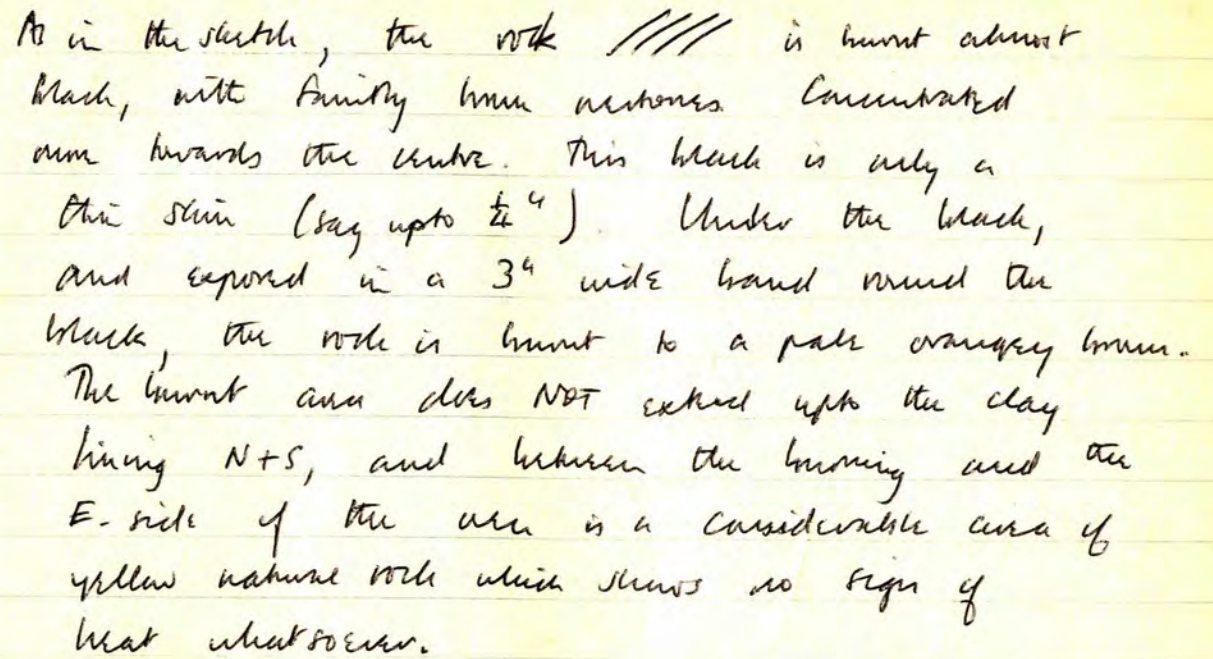 As in the sketch, the rock //// is burnt almost
black, with faintly brown  Concentrated
more towards the centre. This black is only a
thin skin (say upto 1/4"). Under the black,
and exposed in a 3" wide band round the
black, the rock is burnt to a pale orangey brown.
The burnt area does NOT extend upto the clay
lining N+S, and between the burning and the
E-side of the area is a considerable area of
yellow natural rock which shows no sign of
heat whatsoever.